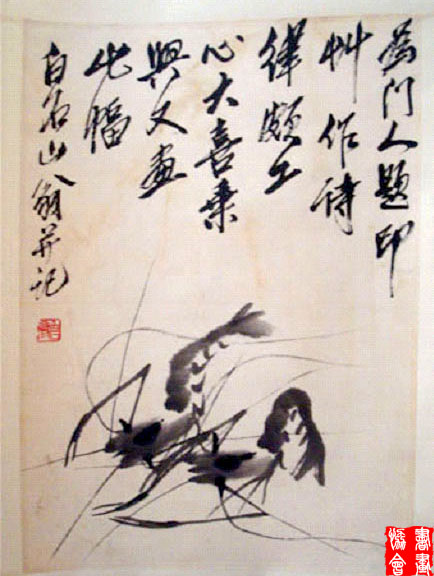 為门人題印
艸作诗
律颇工
心大喜乘
興又畫
此幅
白石山翁并记
書畫
協會